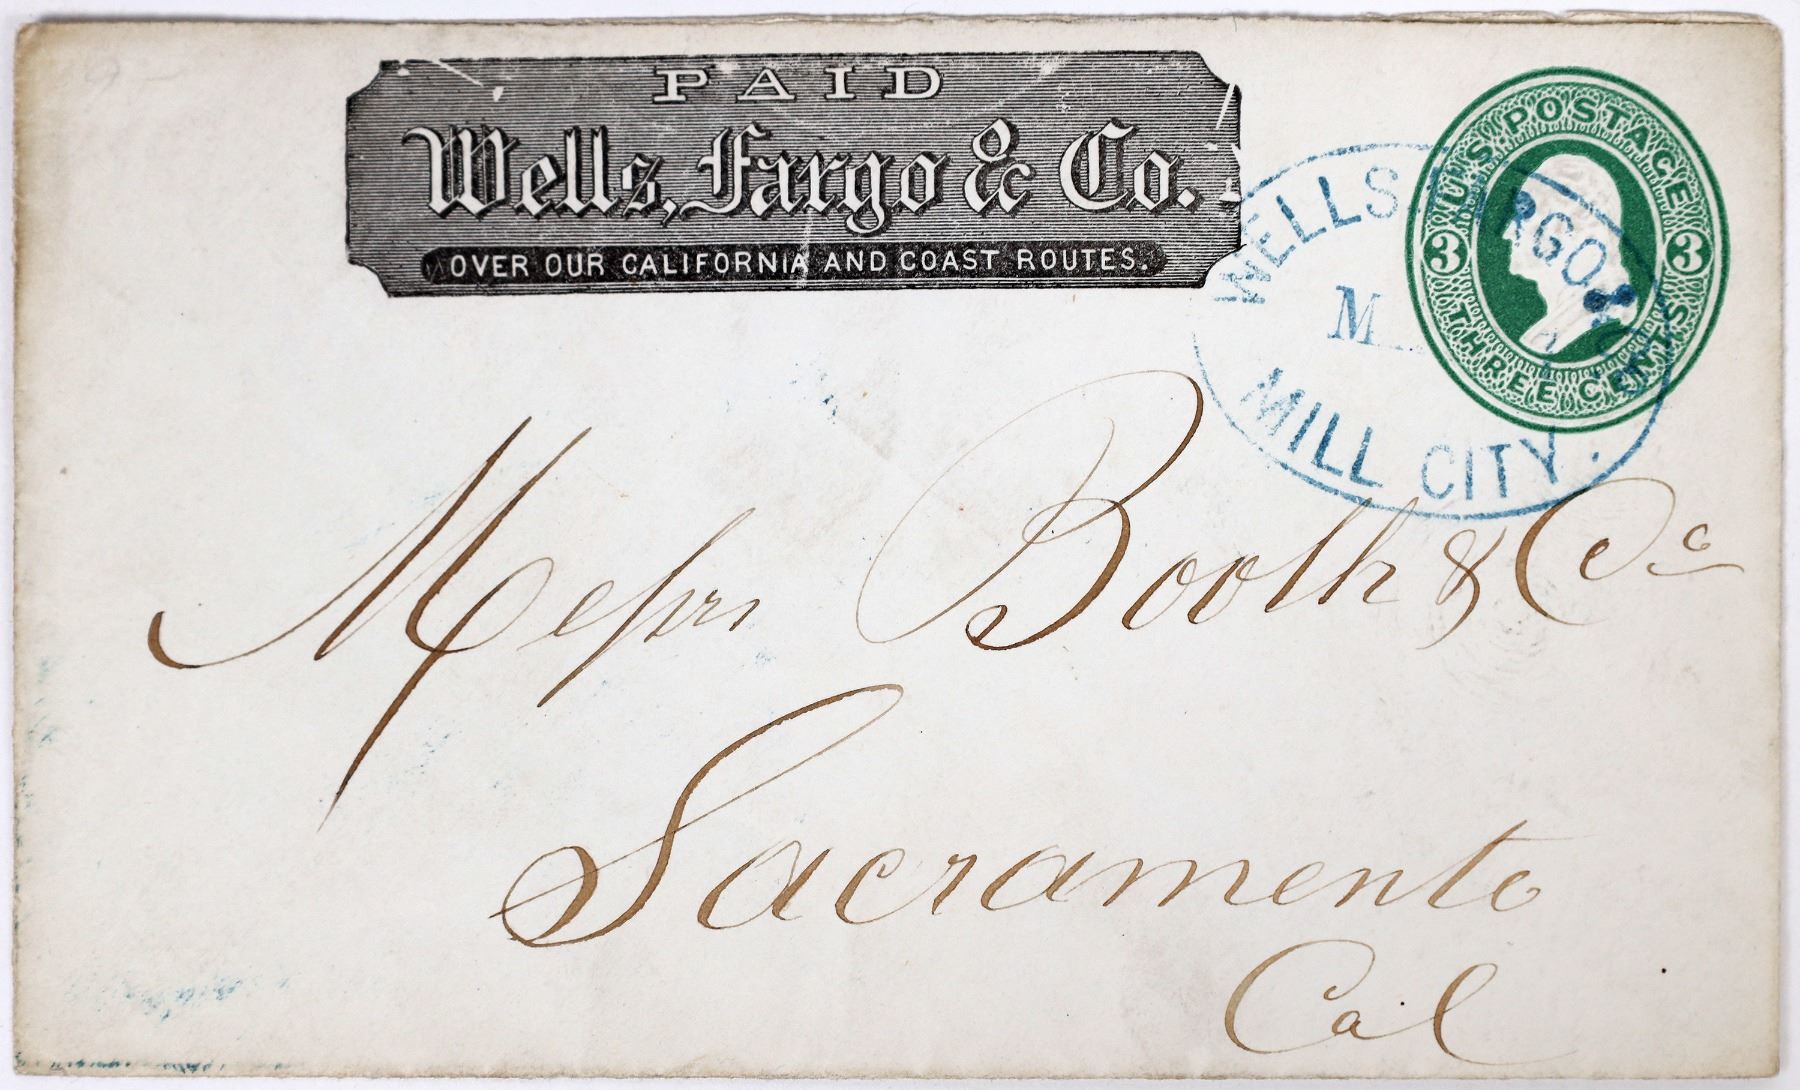 PAID
Wells, Fargo & Co.
OVER OUR CALIFORNIA AND COAST ROUTES.
U.S. POSTAGE
3 3
THREE CENTS
WELLS FARGO & CO.
MILL CITY.
Messrs Booth & Co
Sacramento
Cal